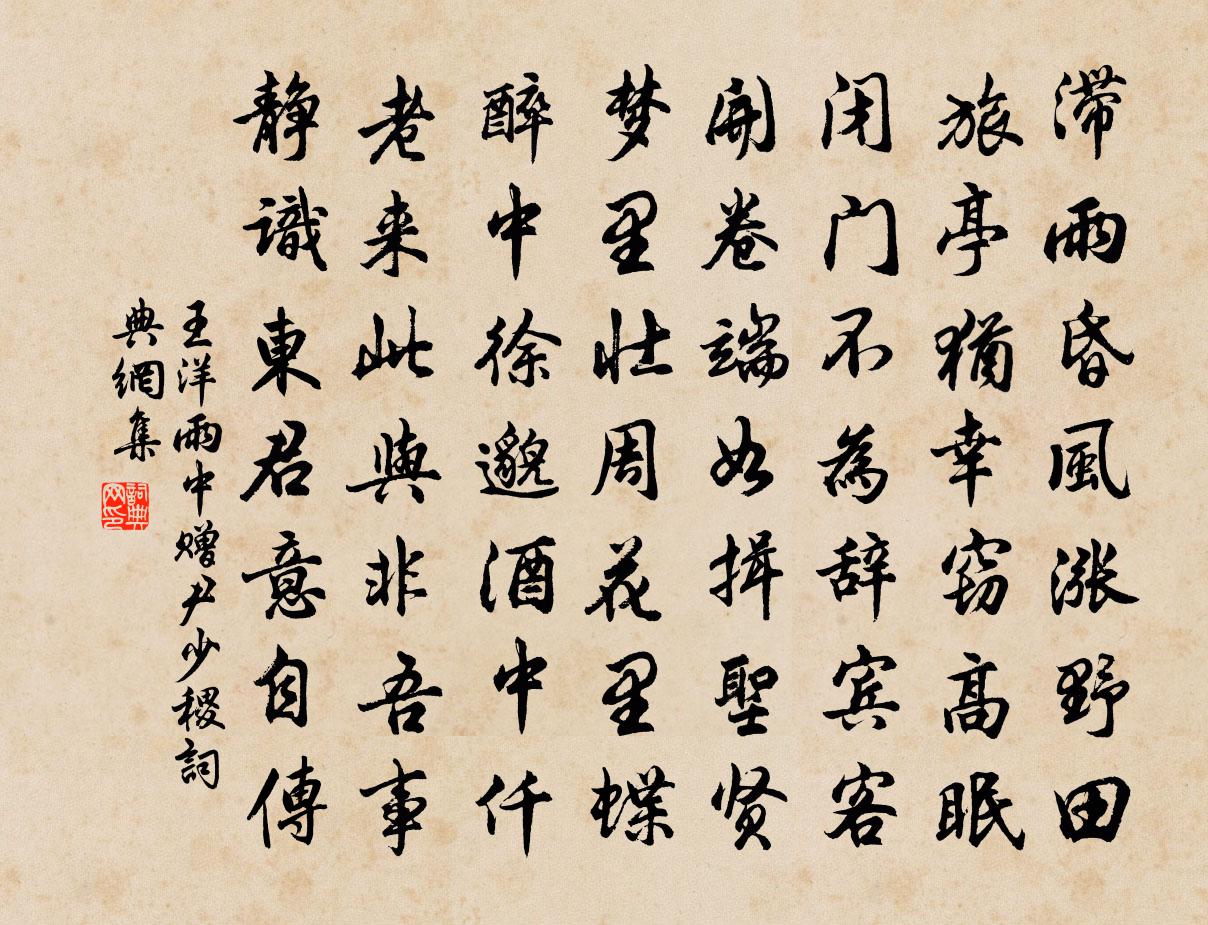 滞雨昏風漲野田
旅亭猶幸窃高眠
闭门不為辞宾客
開卷端如揖聖贤
梦里壮周花里蝶
醉中徐邈酒中仟
老来此與非吾事
静識東君意自傳
王洋雨中赠尹少稷詞
典網集
詞典
网印